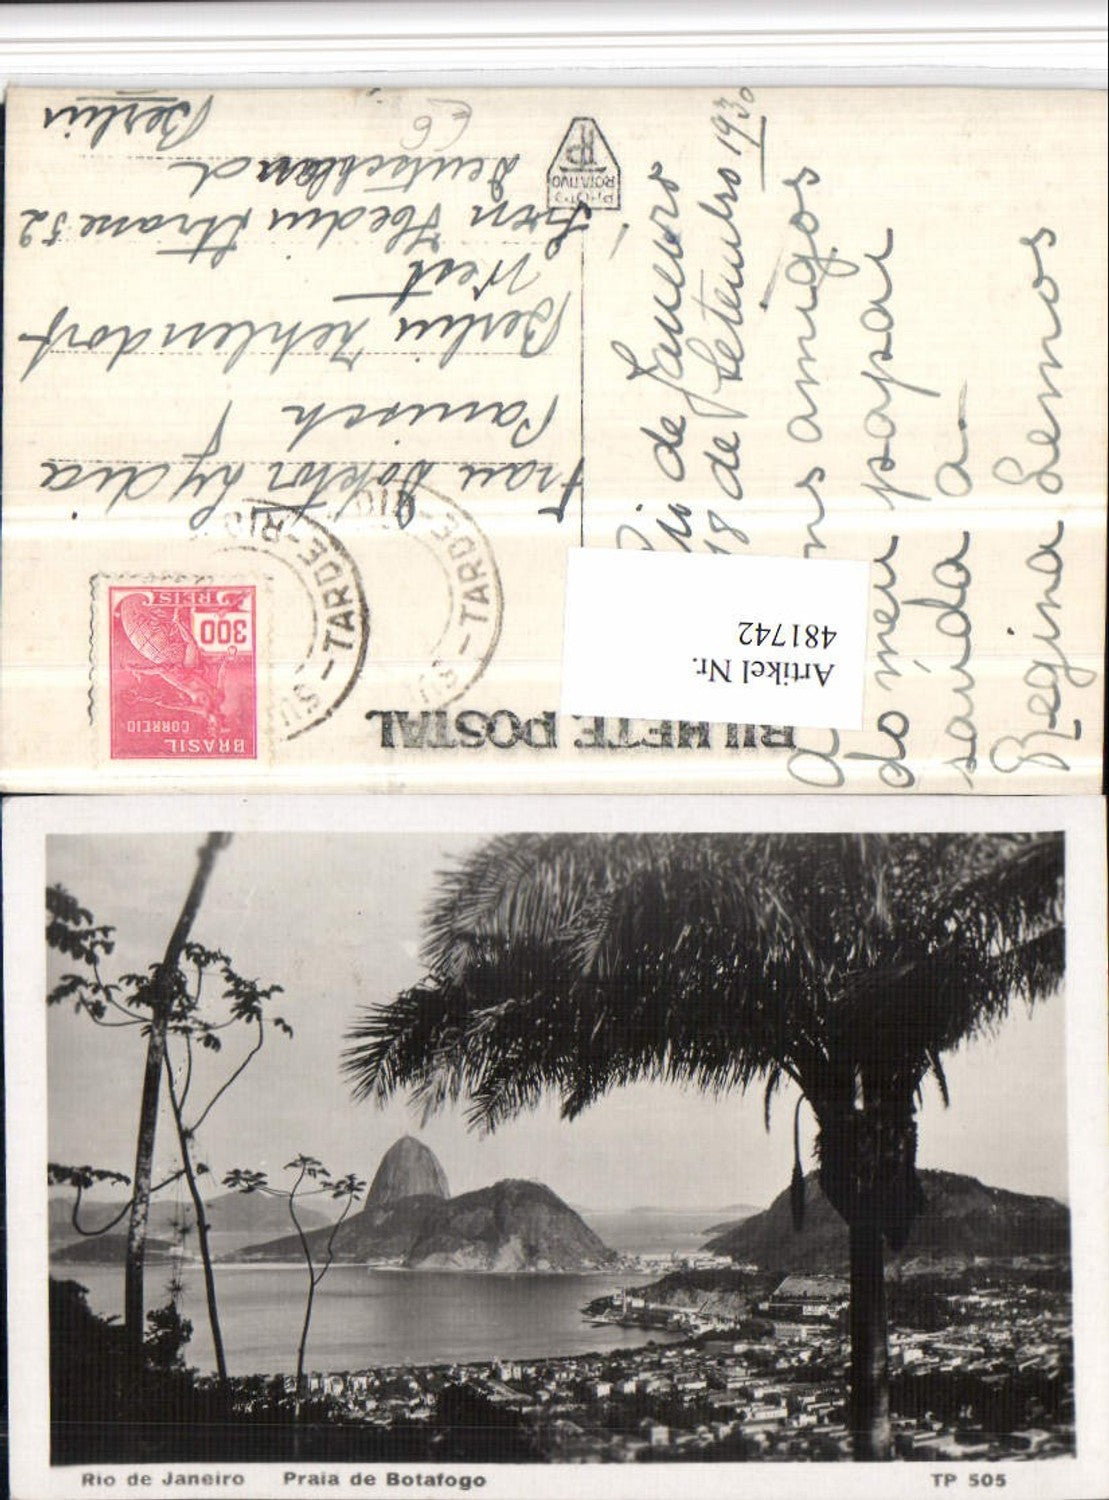 BILHETE POSTAL
BRASIL
CORREIO
300
REIS
TARDE-RIO
TARDE-RIO
Artikel Nr.
481742
Frau Doktor Lydia
Berlin Zehlendorf
West
Deutschland
Berlin
PHOTO
ROTATIVO
Rio de Janeiro
18 de Setembro 1930
amigos
do meu papai
saúda a
Regina Lemos
Rio de Janeiro Praia de Botafogo
TP 505